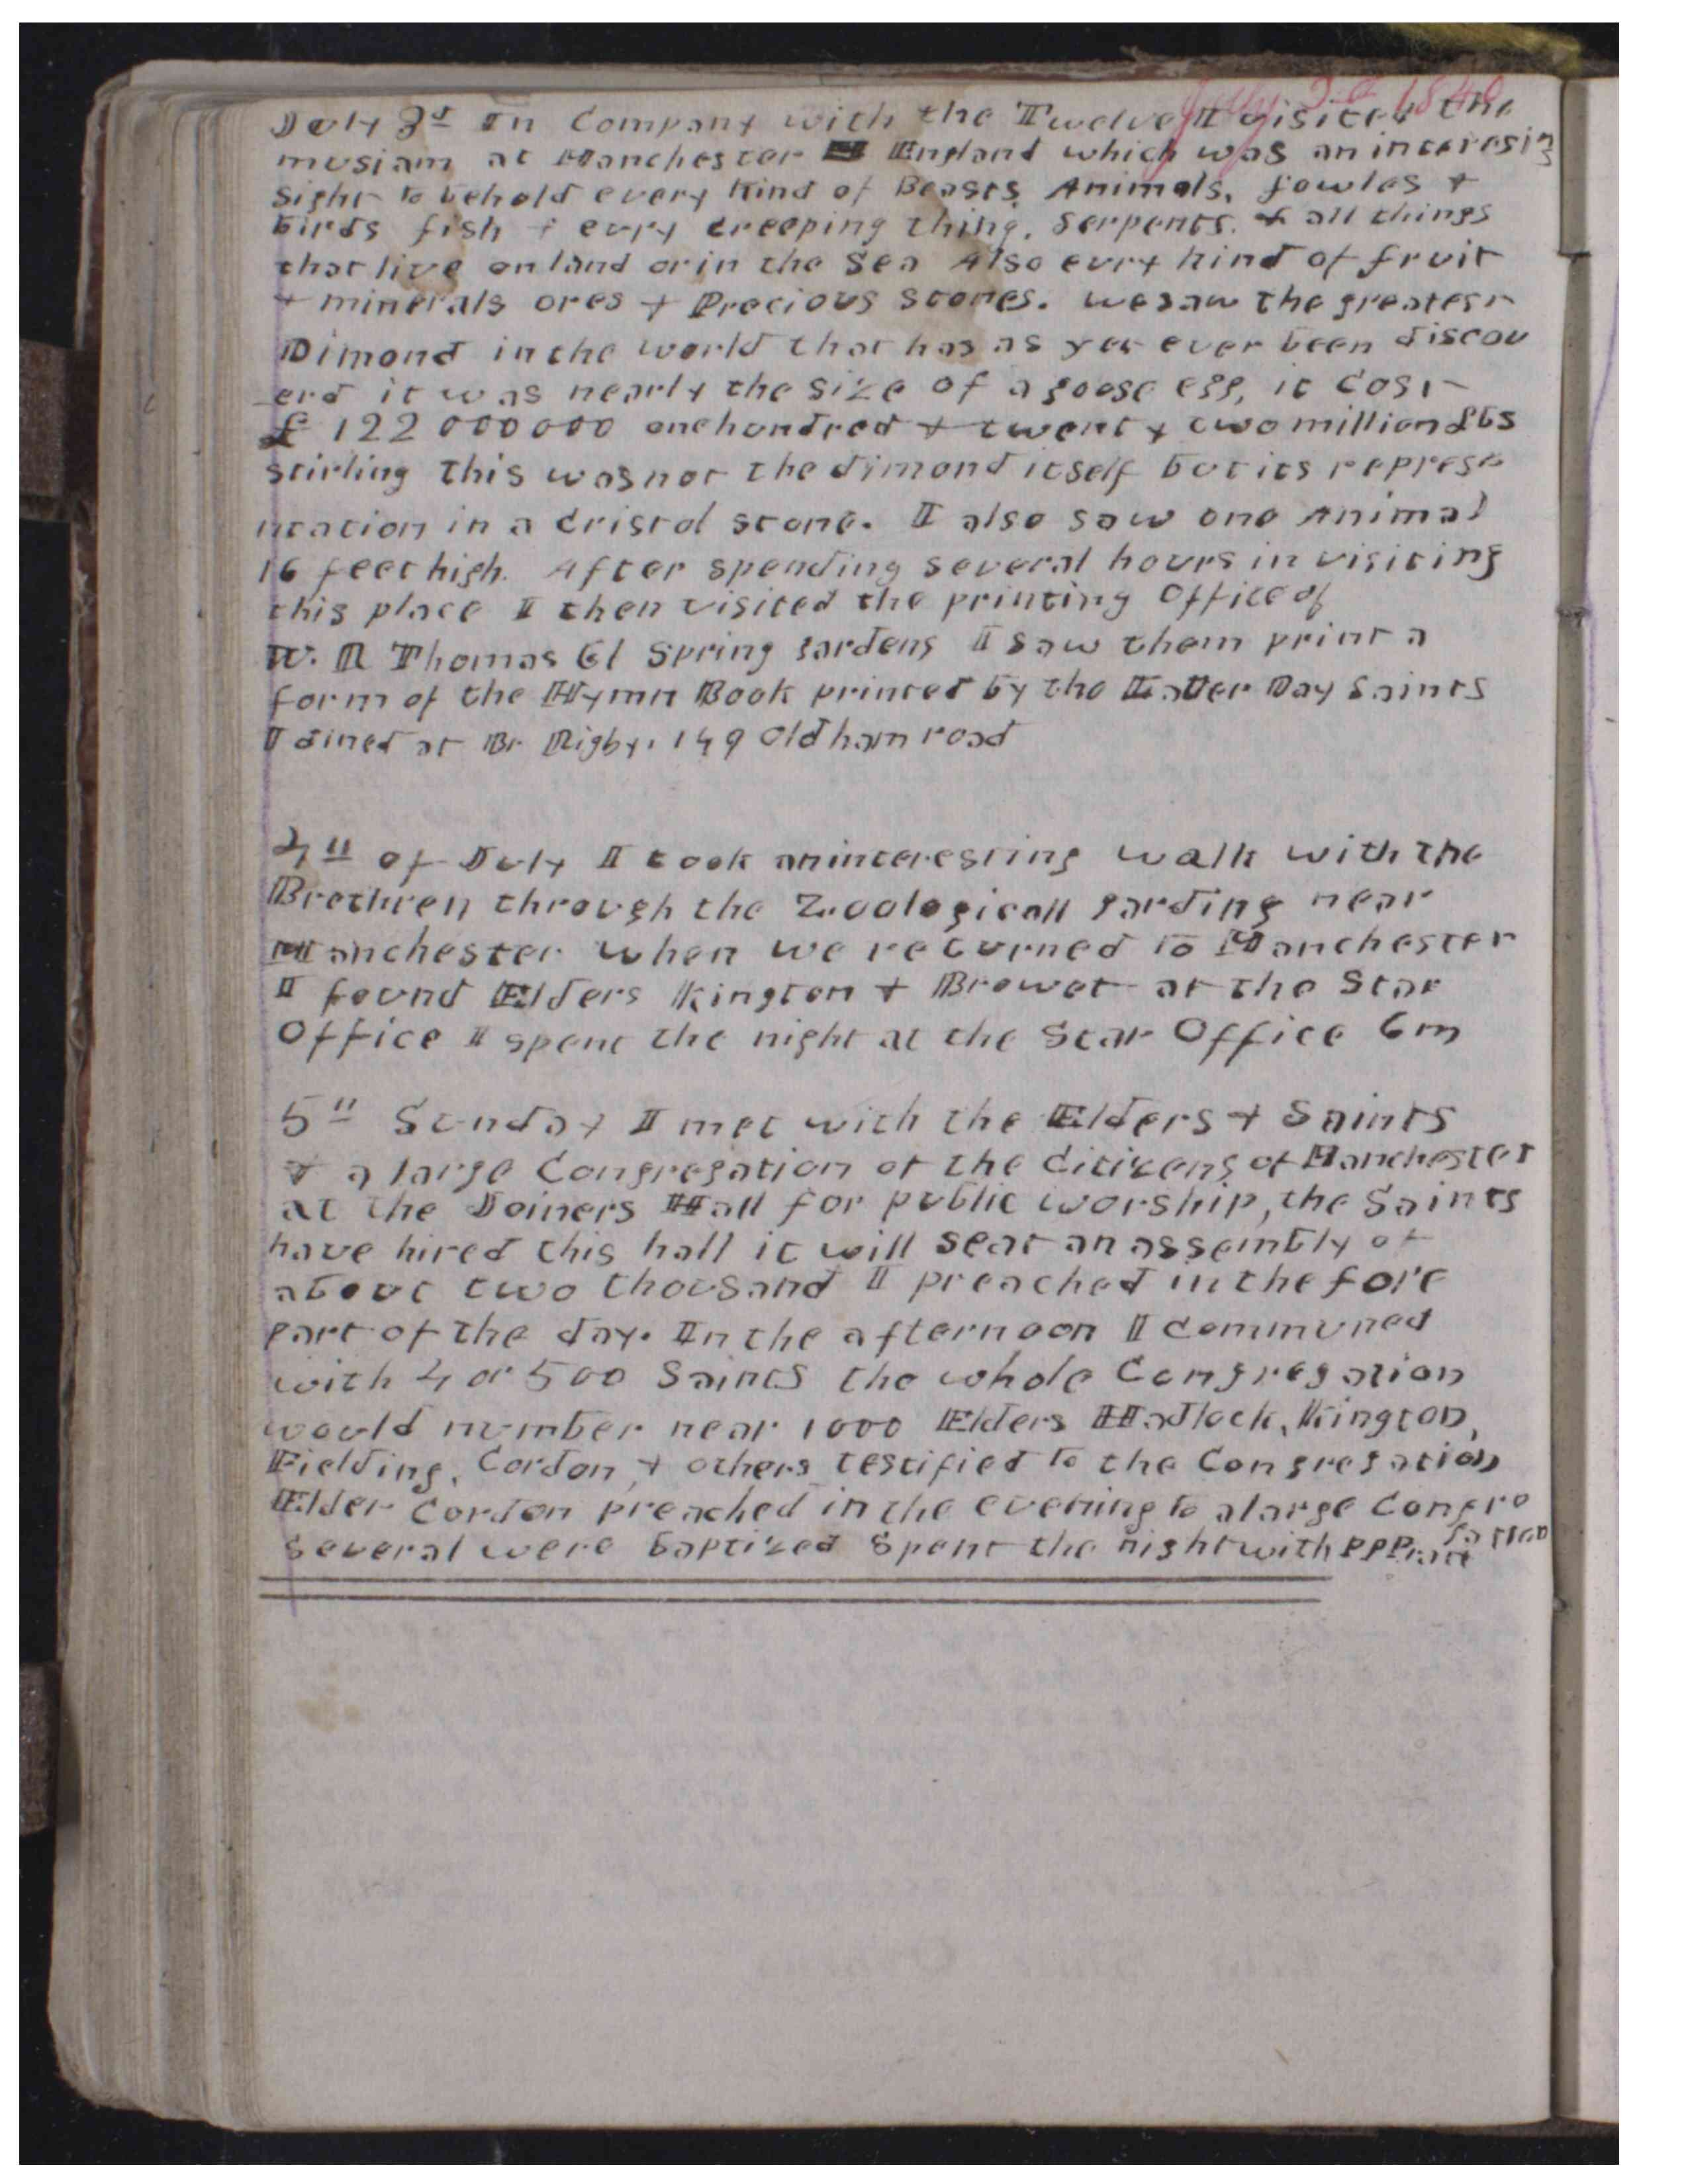 July 3d 1840
July 3d In Company with the Twelve I visited the
musiam at Manchester England which was an interesing
sight to behold every kind of Beasts Animals, fowles &
birds fish & evry creeping thing, Serpents. & all things
that live on land or in the Sea Also evry kind of fruit
& minerals ores & Precious stones. we saw the greatest
Dimond in the world that has as yet ever been discov
erd it was nearly the size of a goose egg, it Cost
£ 122 000000 one hundred & twenty two million £bs
stirling This was not the dimond itself but its represe
ntation in a Cristol stone. I also saw one Animal
16 feet high. After spending several hours in visiting
this place I then visited the printing Office of
W. R Thomas 61 Spring gardens I saw them print a
form of the Hymn Book printed by the Latter Day Saints
I dined at Br Rigby, 149 Oldham road
4th of July I took an interesting walk with the
Brethren through the Zoologicall garding near
Manchester when we returned to Manchester
I found Elders Kington & Browet at the Star
Office I spent the night at the Star Office 6m
5th Sunday I met with the Elders & Saints
& a large Congregation of the Citizens of Manchester
at the Joiners Hall for public worship, the Saints
have hired this hall it will seat an assembly of
about two thousand I preached in the fore
part of the day. In the afternoon I communed
with 4 or 500 Saints the whole Congregation
would number near 1000 Elders Hadlock, Kington,
Fielding, Cordon, & others testified to the Congregation
Elder Cordon preached in the evening to a large Congre
gation
several were baptized Spent the night with PPPratt